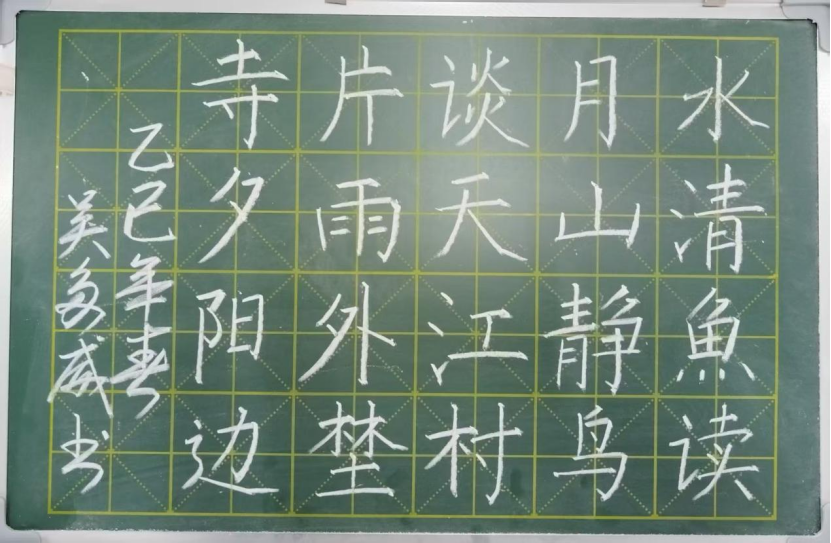 水清魚读
月山静鸟
谈天江村
片雨外埜
寺夕阳边
乙巳年春
吴多威书